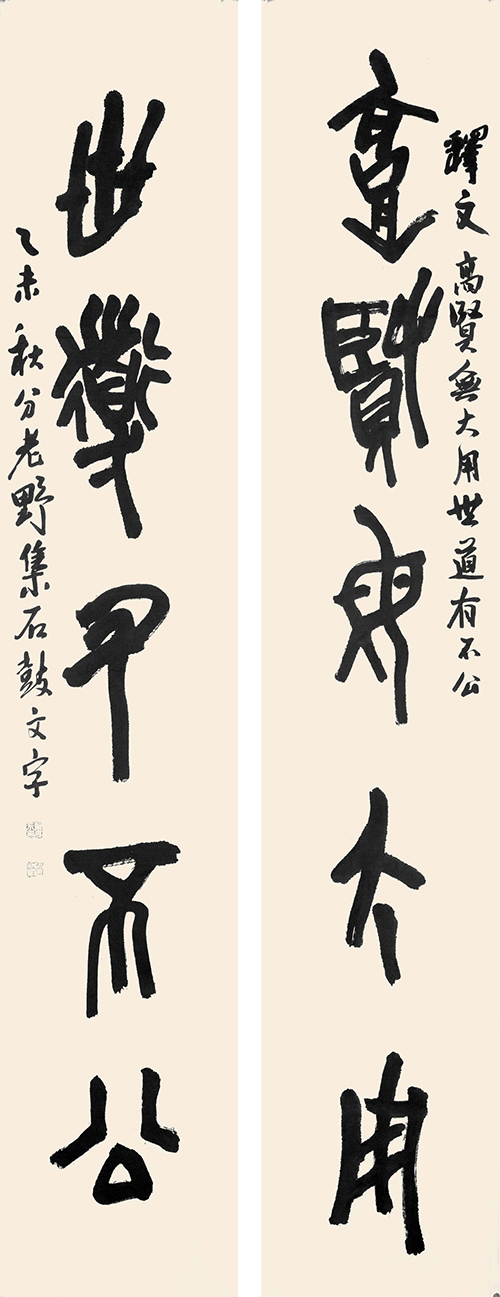 釋文 高賢無大用世道有不公
高賢無大用
世道有不公
乙未秋分老野集石鼓文字